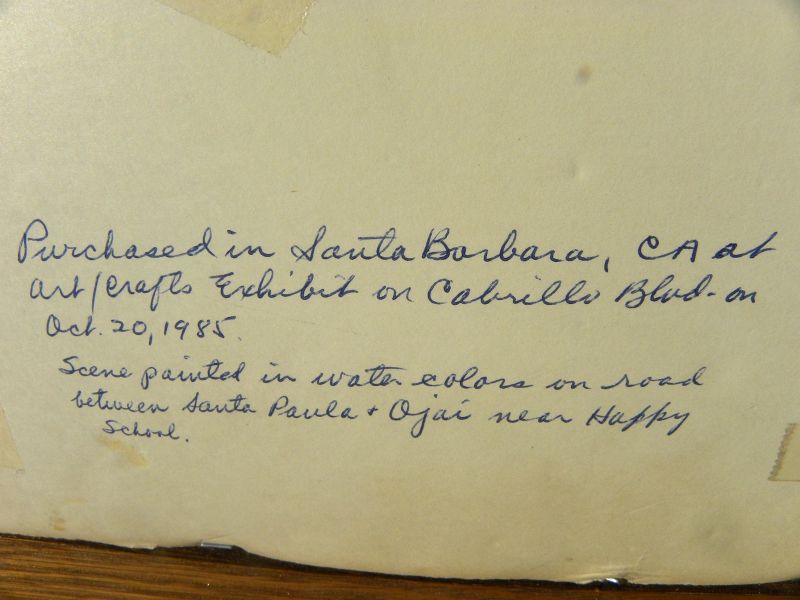 Purchased in Santa Barbara, CA at
Art/Crafts Exhibit on Cabrillo Blvd. on
Oct. 20, 1985.
Scene painted in water colors on road
between Santa Paula + Ojai near Happy
School.